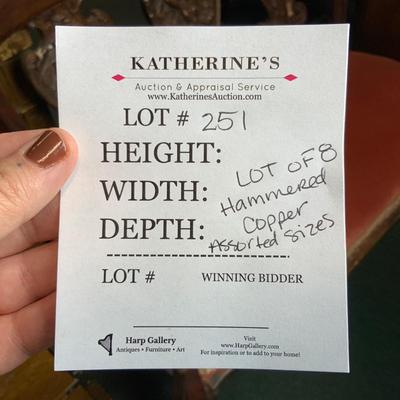 KATHERINE'S
Auction & Appraisal Service
www.KatherinesAuction.com
LOT # 251
HEIGHT:
WIDTH:
DEPTH:
LOT OF 8
Hammered
Copper
Assorted Sizes
LOT # WINNING BIDDER
Harp Gallery
Antiques • Furniture • Art
Visit
www.HarpGallery.com
For inspiration or to add to your home!